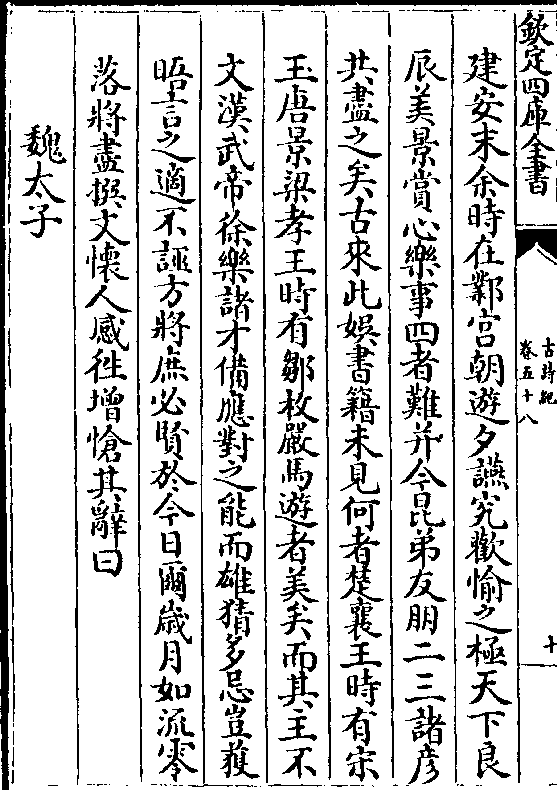 欽定四庫全書
古詩紀
卷五十八
十
建安末余時在鄴宫朝遊夕讌究歡愉之極天下良
辰美景賞心樂事四者難并今昆弟友朋二三諸彦
共盡之矣古來此娛書籍未見何者楚襄王時有宋
玉唐景梁孝王時有鄒枚嚴馬遊者美矣而其主不
文漢武帝徐樂諸才備應對之能而雄猜多忌豈獲
晤言之適不誣方將庶必賢於今日爾歲月如流零
落將盡撰文懷人感徃增愴其辭曰
魏太子